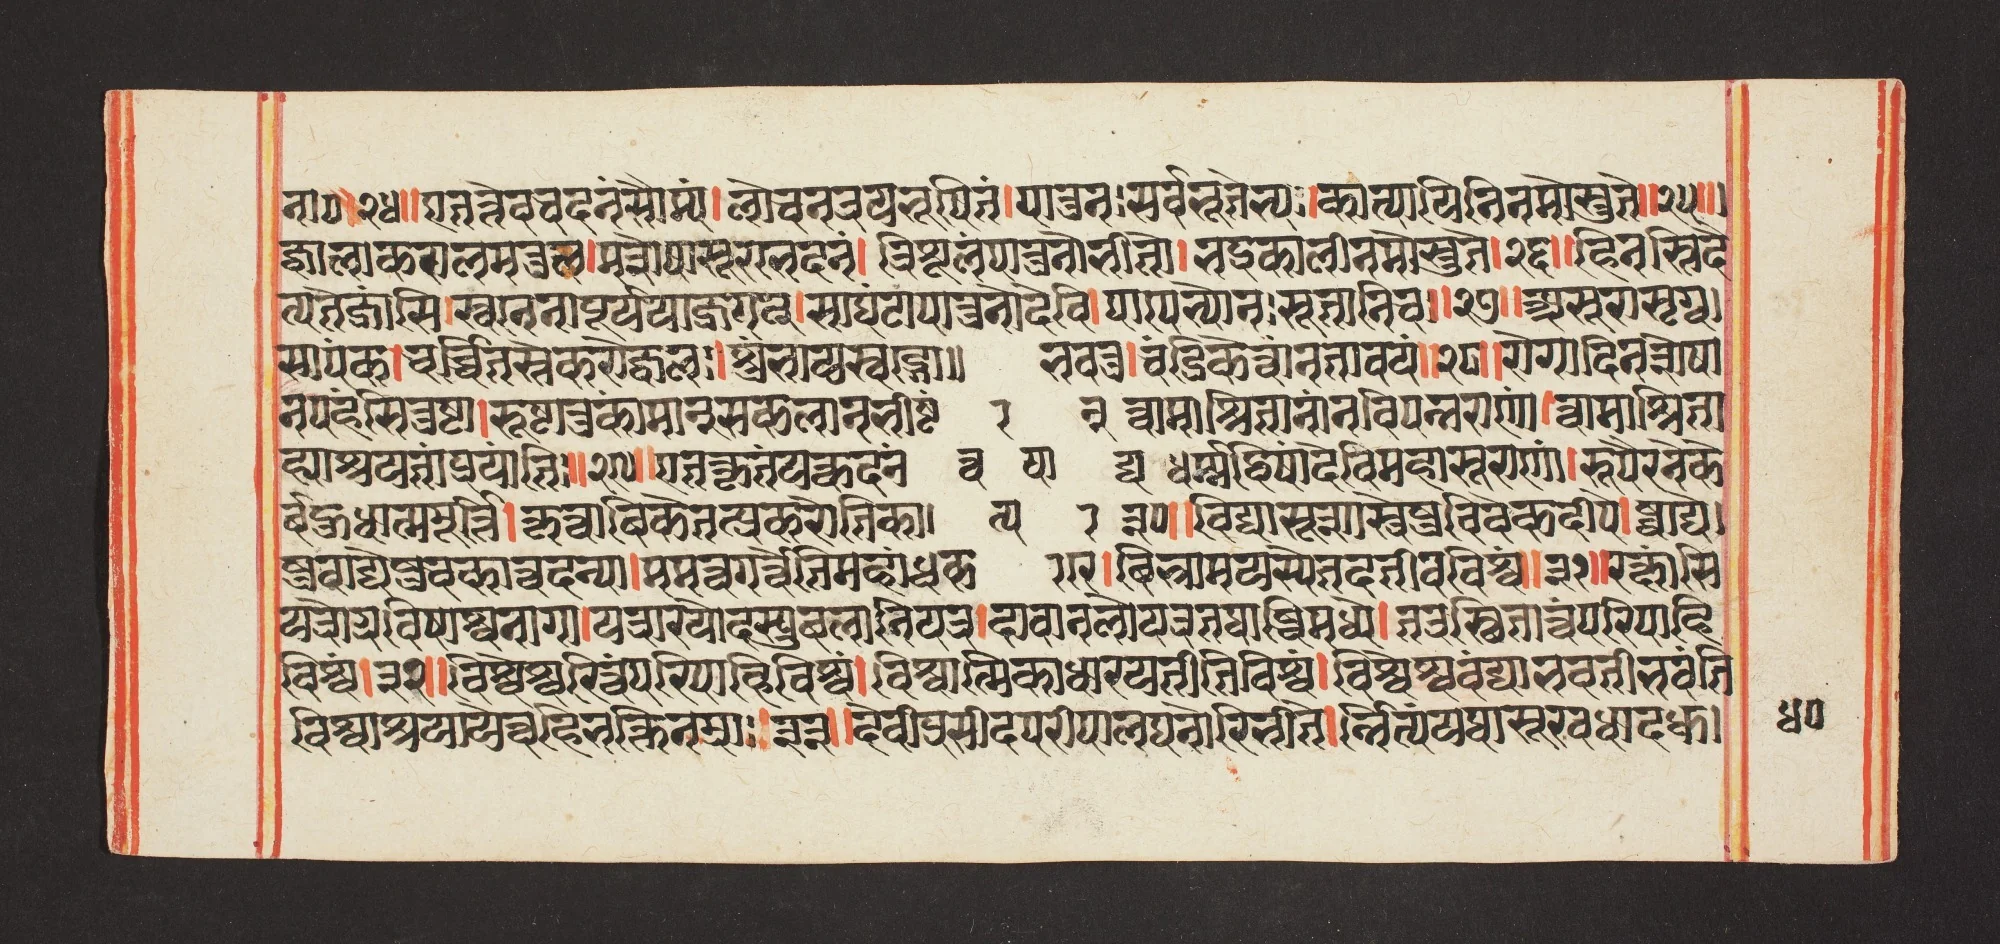 नाο॥२४॥एतत्तेवदनंसौम्यं।लोचनत्रयभूषितं।पातुनः सर्वभूतेभ्यः।कात्यायिनिनमोस्तुते॥२५॥
ज्वालाकरालमत्युग्र।मशेषासूरसूदनं।त्रिशूलंपातुनोभीतो।भद्रकालीनमोस्तुते।२६॥हिनस्तिदै
त्यतेजांसि।स्वनेनापूर्यययाजगत।साघंटापातुनोदेवि।पापेभ्योनः सूतानिव॥२७॥असुरासृग्व
सापंक।चर्चितस्तेकरोज्वलः।शुभायखड्गो॥ भवतु।चंडिकेत्वांनतावयं॥२८॥रोगानशेषा
नपहंसितुष्टा।रुष्टातुकामान्सकलानभीष्टं र न् त्वामाश्रितानांनविपन्नराणां।त्वामाश्रिता
ह्याश्रयतांप्रयांति॥२९॥एतत्कृतंयत्कदनं त्व या द्य धर्मद्विषांदेविमहासूराणां।रूपैरनेकै
र्बहुधात्ममूर्तिं।कृत्वांबिकेतत्प्रकरोतिका। न्य र ३०॥विद्यासूशास्त्रेषुविवेकदीपे।ष्वाद्ये
षुवाक्येषुचकात्वदन्या।ममत्वगर्त्तेतिमहांधका ारे।बिभ्रामयत्येतदतीवविश्वं॥३१॥रक्षांसि
यत्रोग्रविषाश्चनागा।यत्रारयोदस्युबलानियत्र।दावानलोयत्रतथाब्धिमध्ये।तत्रस्थितात्वंपरिपाहि
विश्वं।३२॥विश्वेश्वरित्वंपरिपाहिविश्वं।विश्वात्मिकाधारयतीतिविश्वं।विश्वेश्वंवंद्याभवतीभवंति
विश्वाश्रयायेत्वहिभक्तिनम्राः।३३॥देवीप्रसीदपरीपालयनोरिभीते।र्न्नित्यंयथासूरवधादधु।
४०